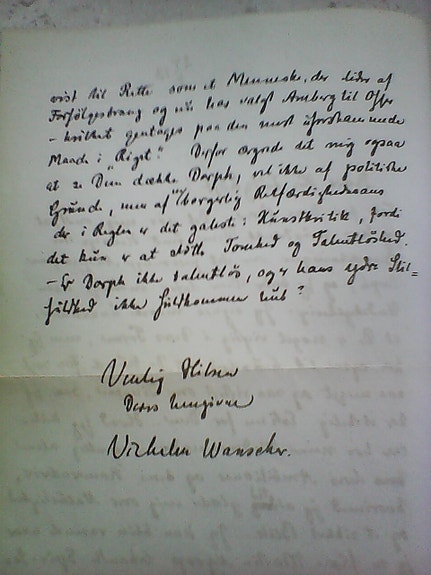 vist til Rette som et Menneske, der lider af
Forfölgestrang og nu har valgt Amberg til Offer
- hvilket gentages paa den mest uforskammede
Maade i "Riget". Derfor ærgrede det mig ogsaa
at De dække Dorph, vel ikke af politiske
Grunde, men af "borgerlig Retfærdighedssans
der i Reglen er det galeste i Kunstkritik, fordi
det kun er at støtte Tomhed og Talentløshed.
- Er Dorph ikke talentløs, og er hans ydre Stil=
fuldhed ikke fuldkommen hul?
Venlig Hilsen
Deres hengivne
Vilhelm Wanscher.